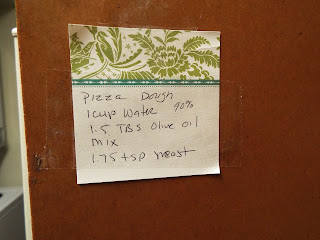 Pizza Dough
1 cup water 90%
1.5 TBS Olive oil
mix
1.75 tsp yeast